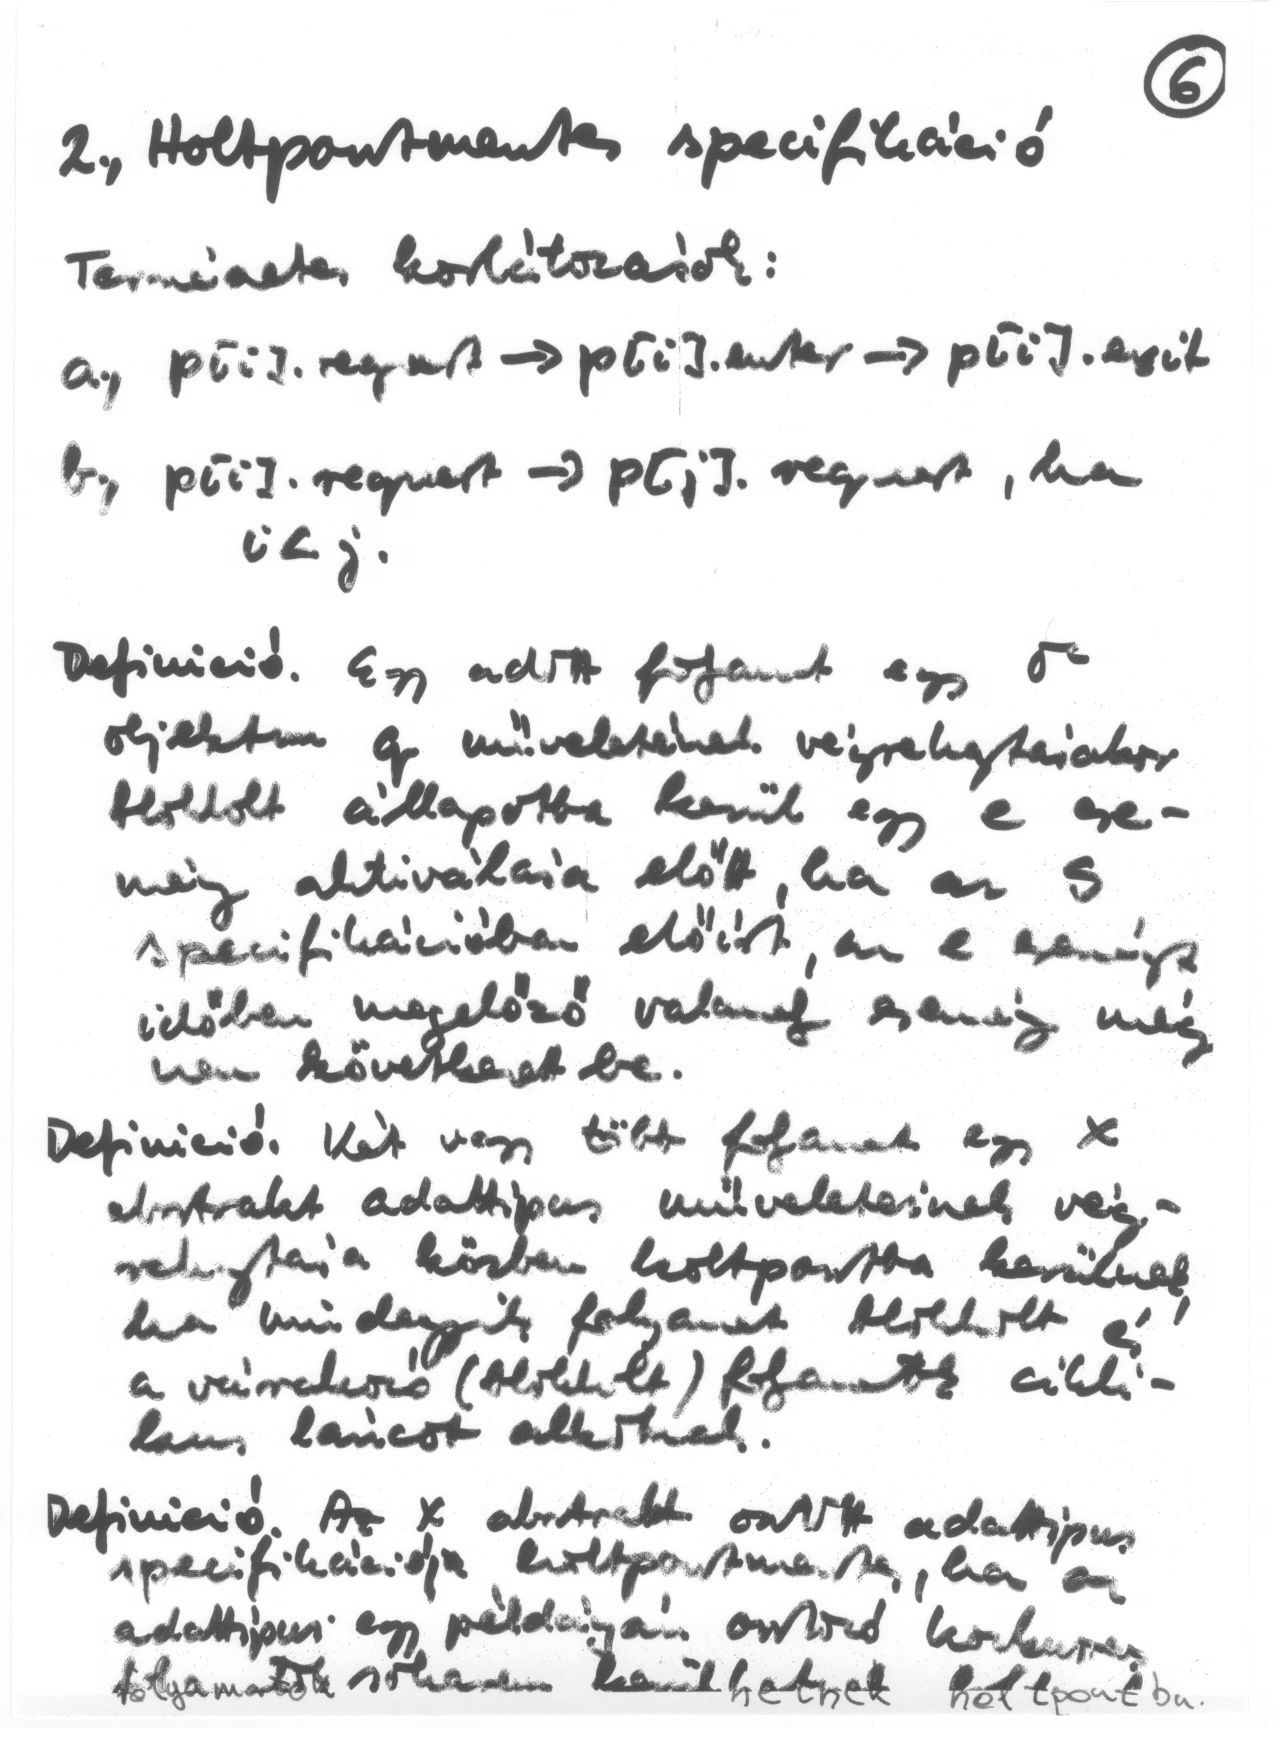 6
2., Holtpontmentes specifikáció
Természetes korlátozások:
a., p[i].request → p[i].enter → p[i].exit
b., p[i].request → p[j].request, ha
i < j.
Definíció. Egy adott folyamat egy
objektum q műveletének végrehajtásakor
blokkolt állapotba kerül egy e ese-
mény aktiválása előtt, ha az S
specifikációban előírt, az e eseményt
időben megelőző valamely esemény még
nem következett be.
Definíció. Két vagy több folyamat egy X
absztrakt adattípus műveleteinek vég-
rehajtása közben holtpontba kerülnek,
ha mindegyik folyamat blokkolt és
a várakozó (blokkolt) folyamatok cikli-
kus láncot alkotnak.
Definíció. Az X absztrakt osztott adattípus
specifikációja holtpontmentes, ha az
adattípus egy példányán osztozó konkurrens
folyamatok sohasem kerülhetnek holtpontba.